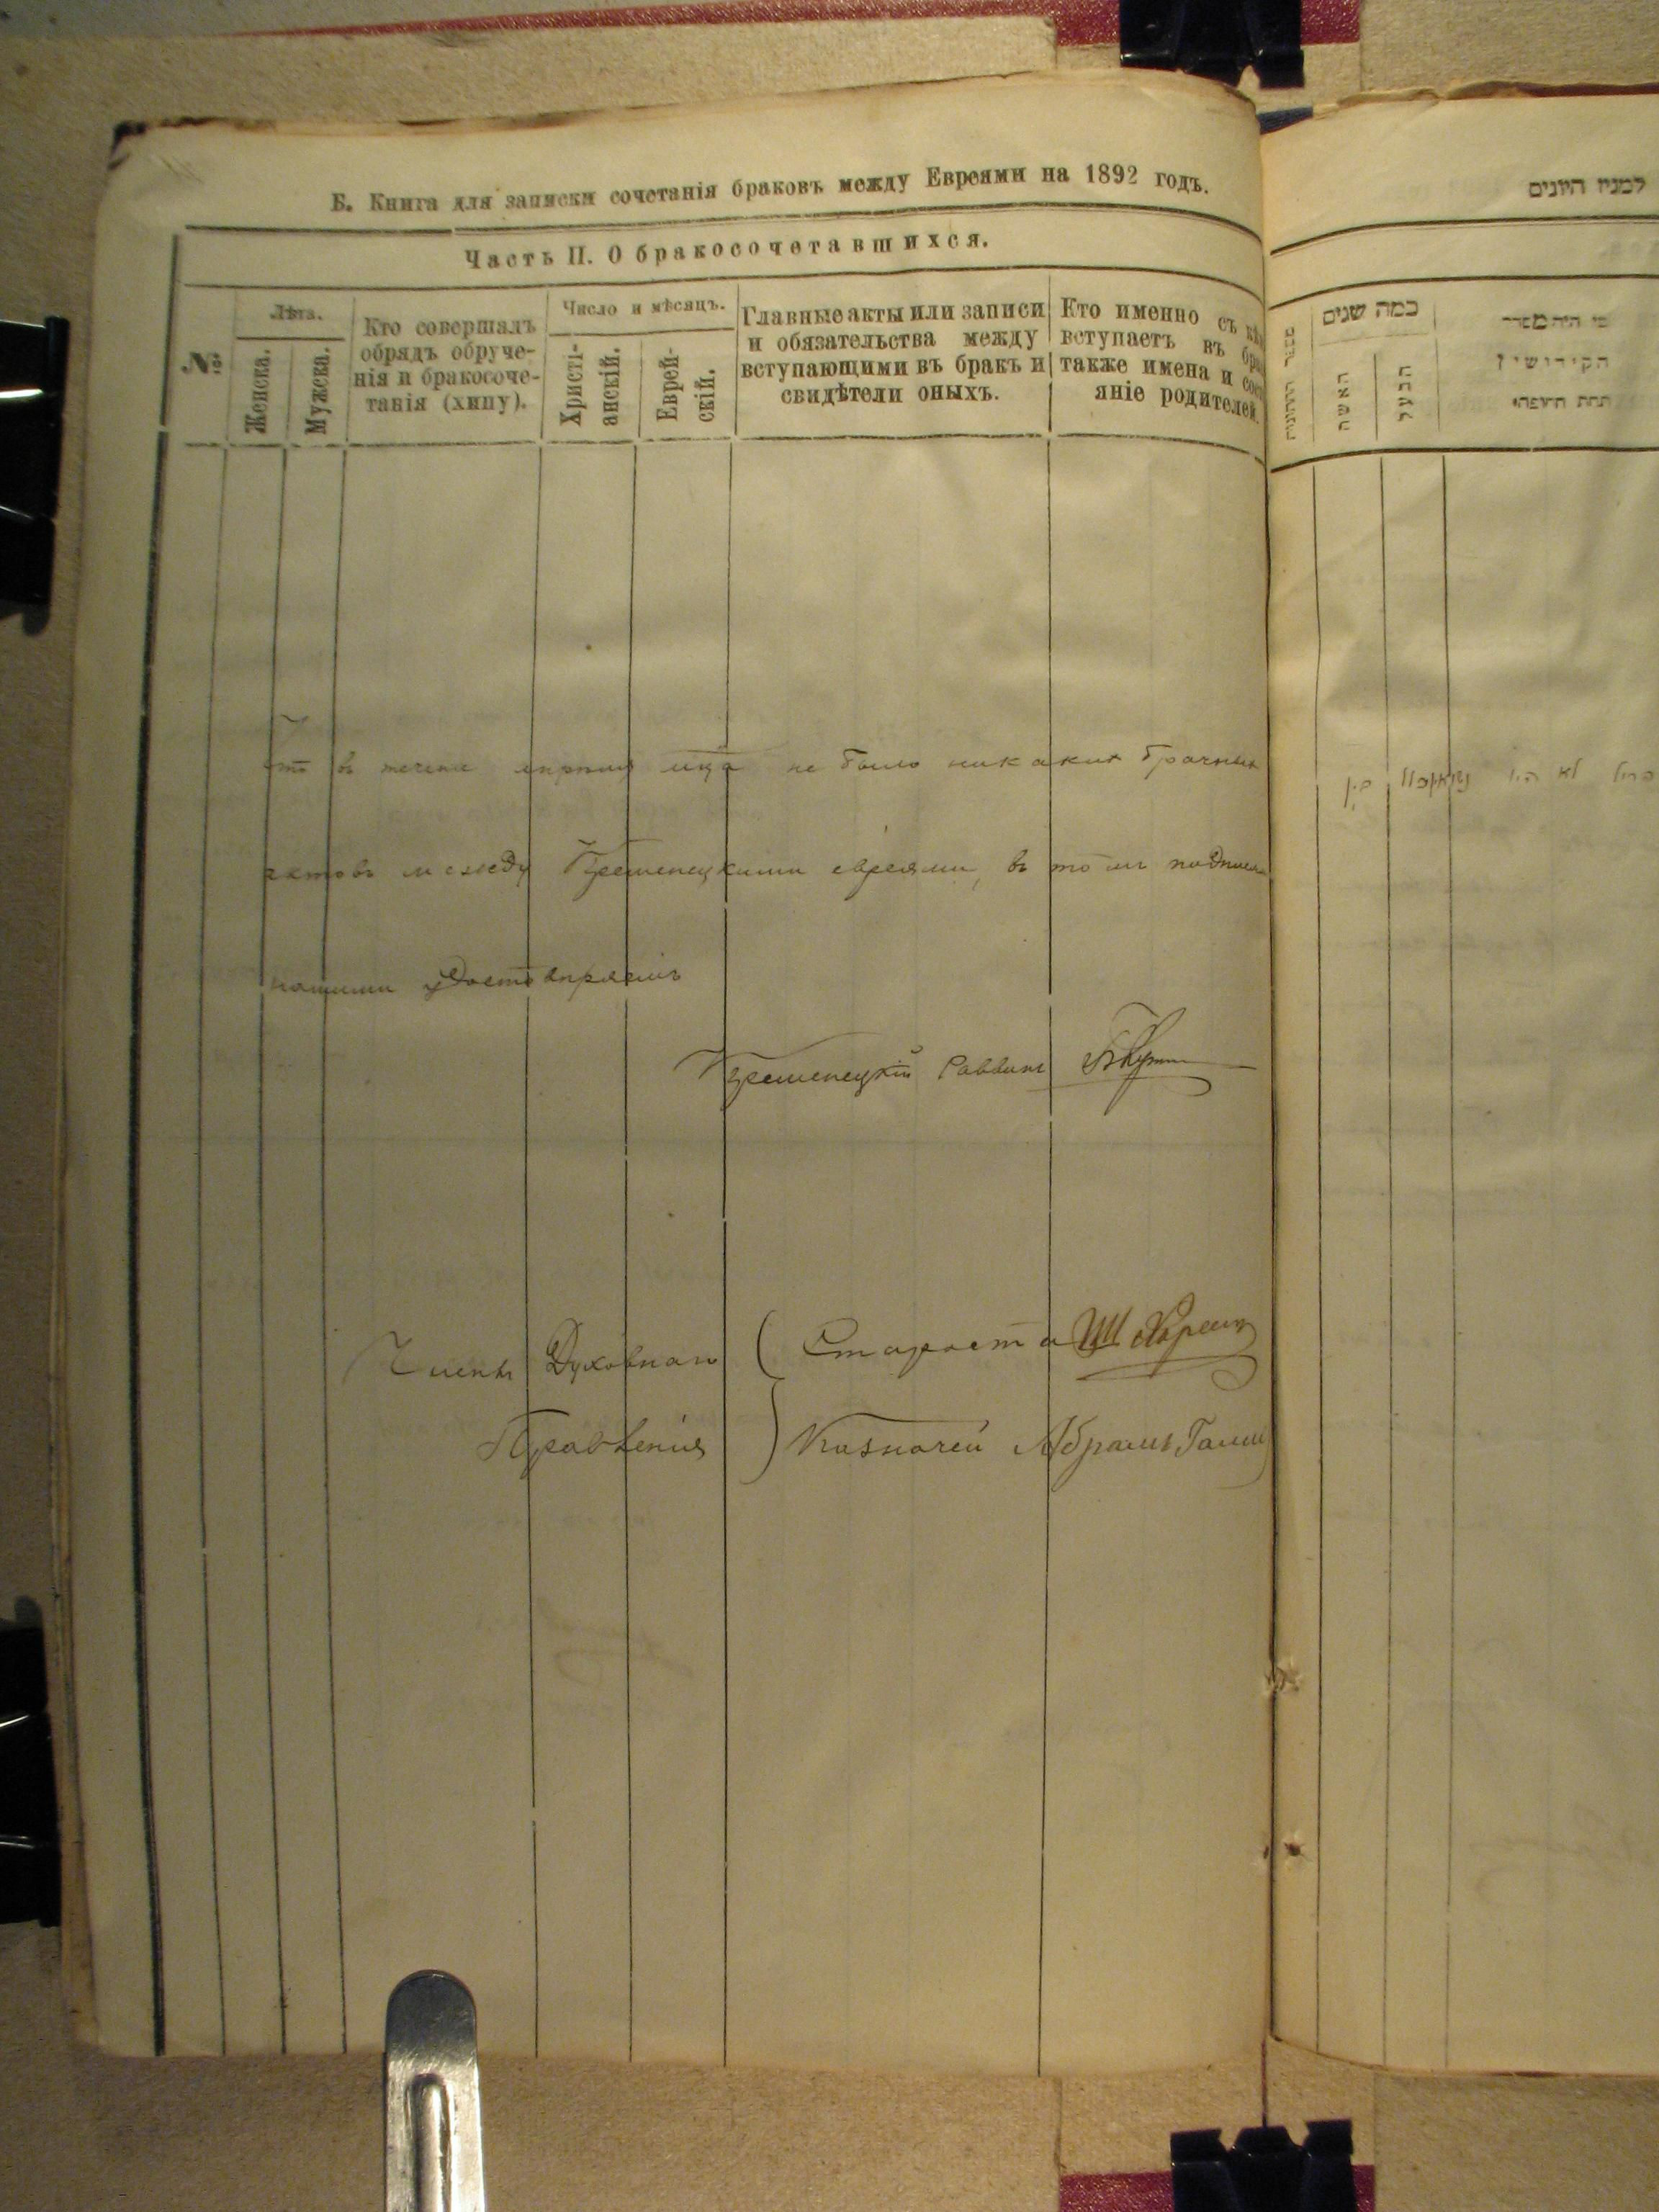 Б. Книга для записки сочетанія браковъ между Евреями на 1892 годъ.
Часть II. О бракосочетавшихся.
№
Лѣта.
Женска.
Мужска.
Кто совершалъ
обрядъ обруче-
нія и бракосоче-
танія (хипу).
Число и мѣсяцъ.
Христі-
анскій.
Еврей-
скій.
Главные акты или записи
и обязательства между
вступающими въ бракъ и
свидѣтели оныхъ.
Кто именно съ кѣ
вступаетъ въ бра
также имена и сос
яніе родителей.
Что въ течене мца не было никакихъ брачныхъ
актовъ между Кременецкими евреями, въ томъ подписями
нашими удостовѣряемъ
Кременецкій Раввинъ
Члены Духовнаго
Правленія
Староста
Казначей Абрамъ
למנין היונים
כמה שנים
האשה
הבעל
מי היה מסדר
הקידושין
תחת החופה
לא היו